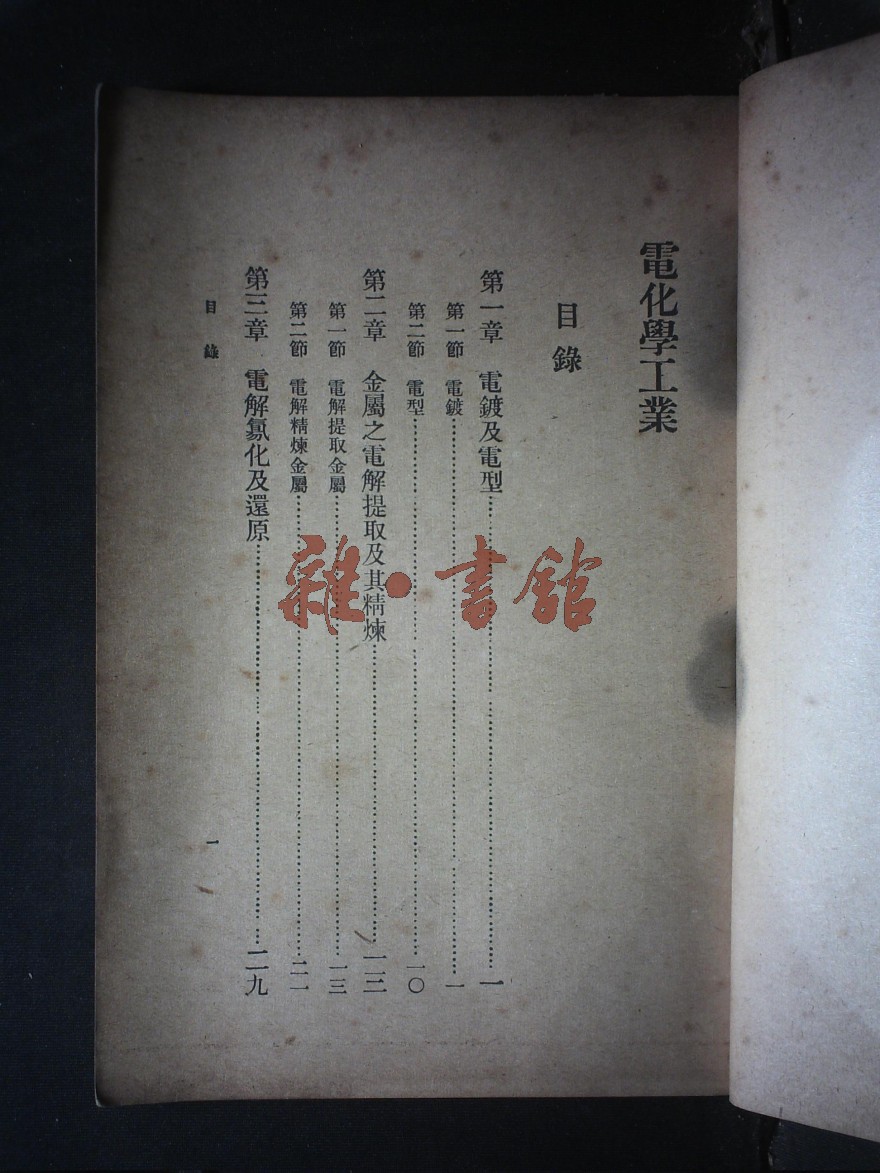 電化學工業
目錄
第一章 電鍍及電型…………一
第一節 電鍍…………一
第二節 電型…………一〇
第二章 金屬之電解提取及其精煉…………一三
第一節 電解提取金屬…………一三
第二節 電解精煉金屬…………二一
第三章 電解氯化及還原…………二九
目錄
一
雜·書館